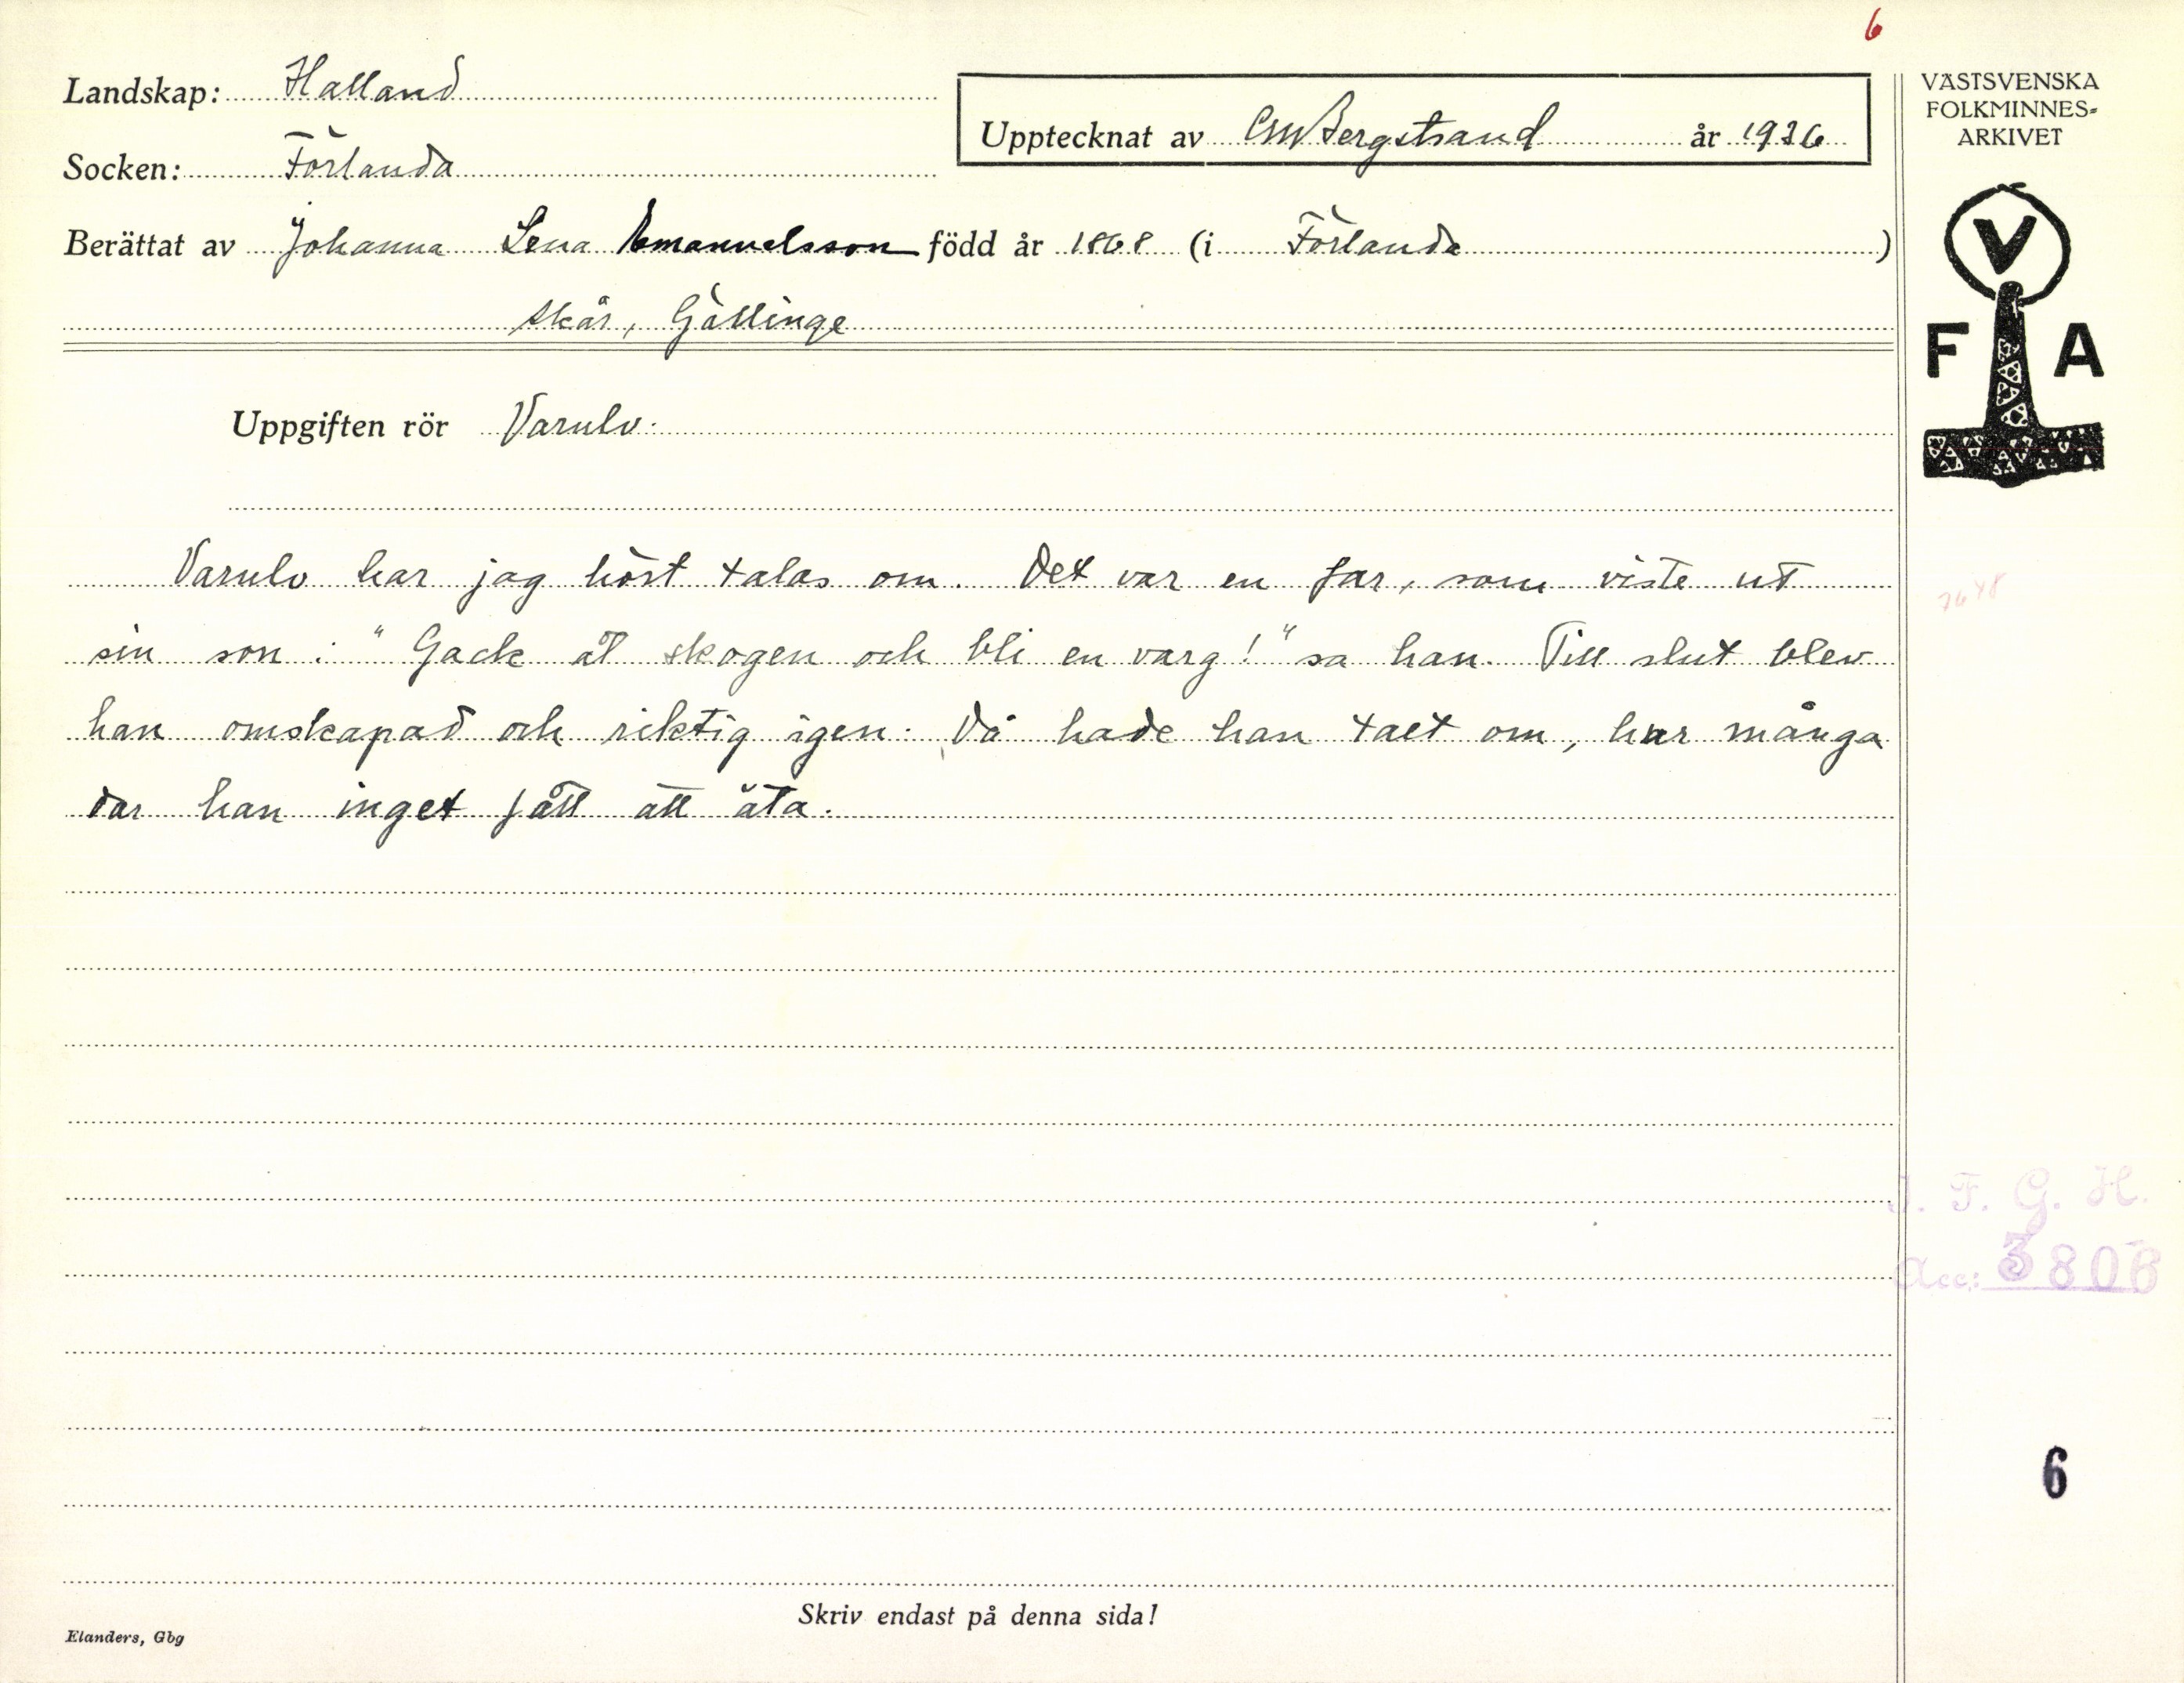 6
Landskap: Halland
Upptecknat av CMBergstrand år 1936
Socken: Förlanda
Berättat av Johanna Lena Emanuelsson född år 1868 (i Förlanda)
Skår, Gällinge
VÄSTSVENSKA
FOLKMINNES-
ARKIVET
V
F A
Uppgiften rör Varulv.
Varulv har jag hört talas om. Det var en far, som viste ut
sin son: "Gack åt skogen och bli en varg!" sa han. Till slut blev
han omskapad och riktig igen. Då hade han talt om, hur många
dar han inget fått att äta.
I. F. G. H.
Acc: 3806
6
Skriv endast på denna sida!
Elanders, Gbg